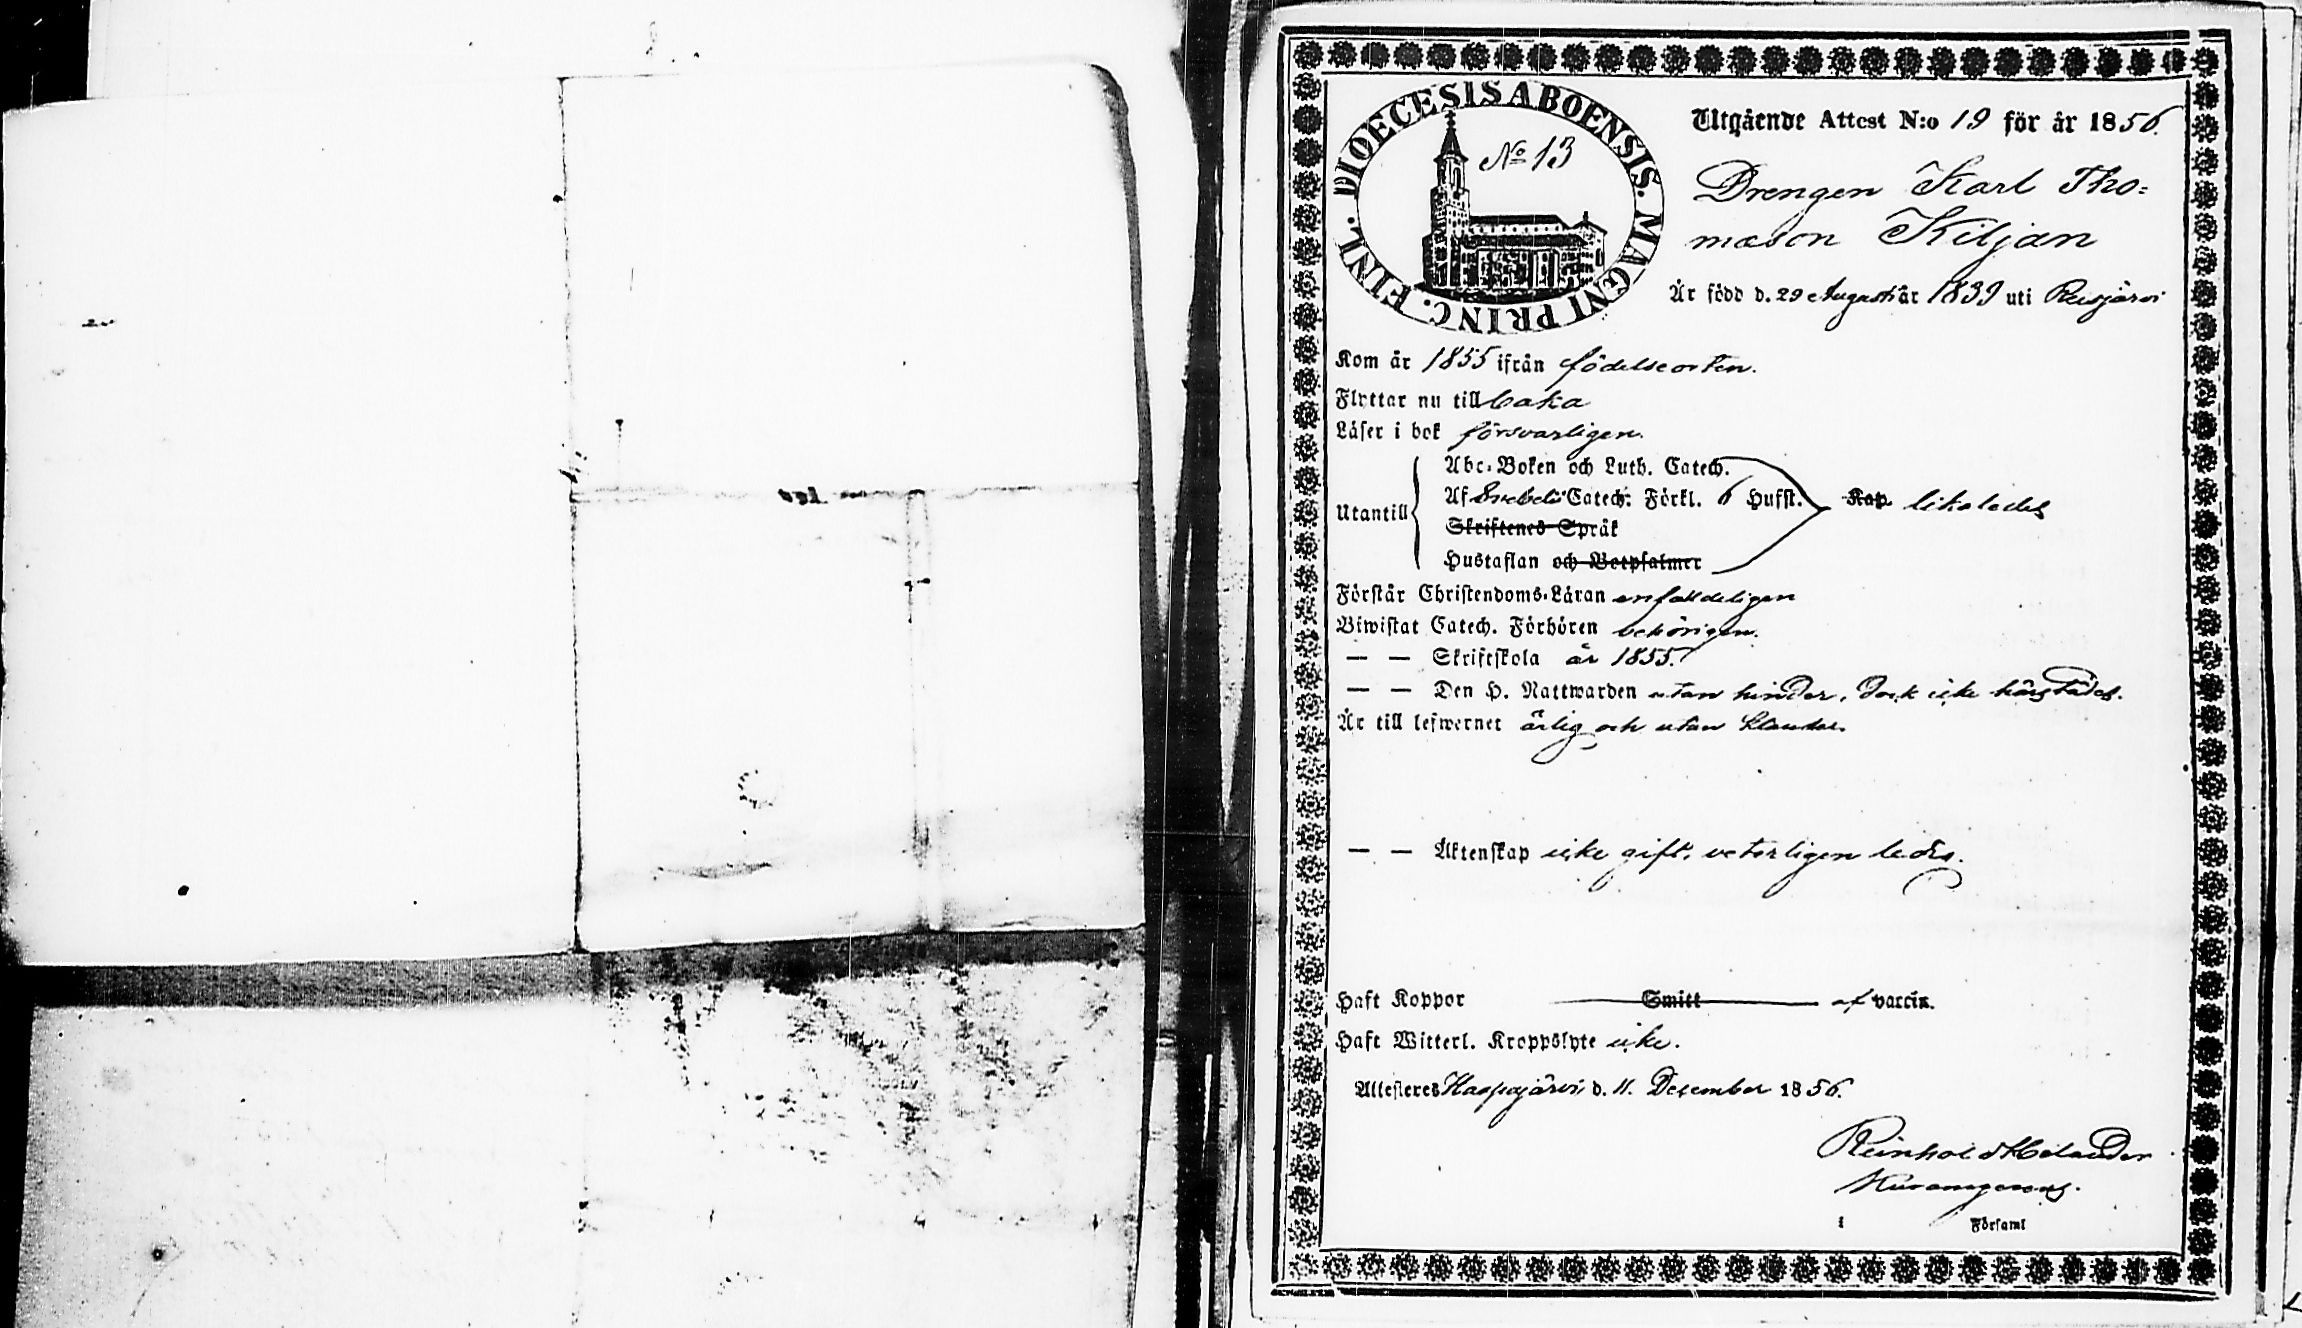 DIOECESIS ABOENSIS. MAGNI PRINC. FINL.
No 13
Utgående Attest N:o 19 för år 1856.
Drengen Karl Tho=
masson Kiljan
Är född d. 29 Augusti år 1839 uti Reisjärvi
Kom år 1855 ifrån födelseorten.
Flyttar nu tillbaka
Läser i bok försvarligen.
Abc-Boken och Luth. Catech.
Utantill
Af Svebelii Catech. Förkl. 6 Hufst. Kap. likaledes
Skriftenes Språk
Hustaflan och Botpsalmer
Förstår Christendoms-Läran enfaldeligen
Biwistat Catech. Förhören behörigen.
— — Skriftskola år 1855.
— — Den H. Nattwarden utan hinder, dock icke härstädes.
Är till lefwernet ärlig och utan klander.
— — Äktenskap icke gift, veterligen ledig.
Haft Koppor Smitt af vaccin.
Haft Witterl. Kroppslyte icke.
Attesteres Haapajärvi, d. 11. December 1856.
Reinhold Helander
i Församl